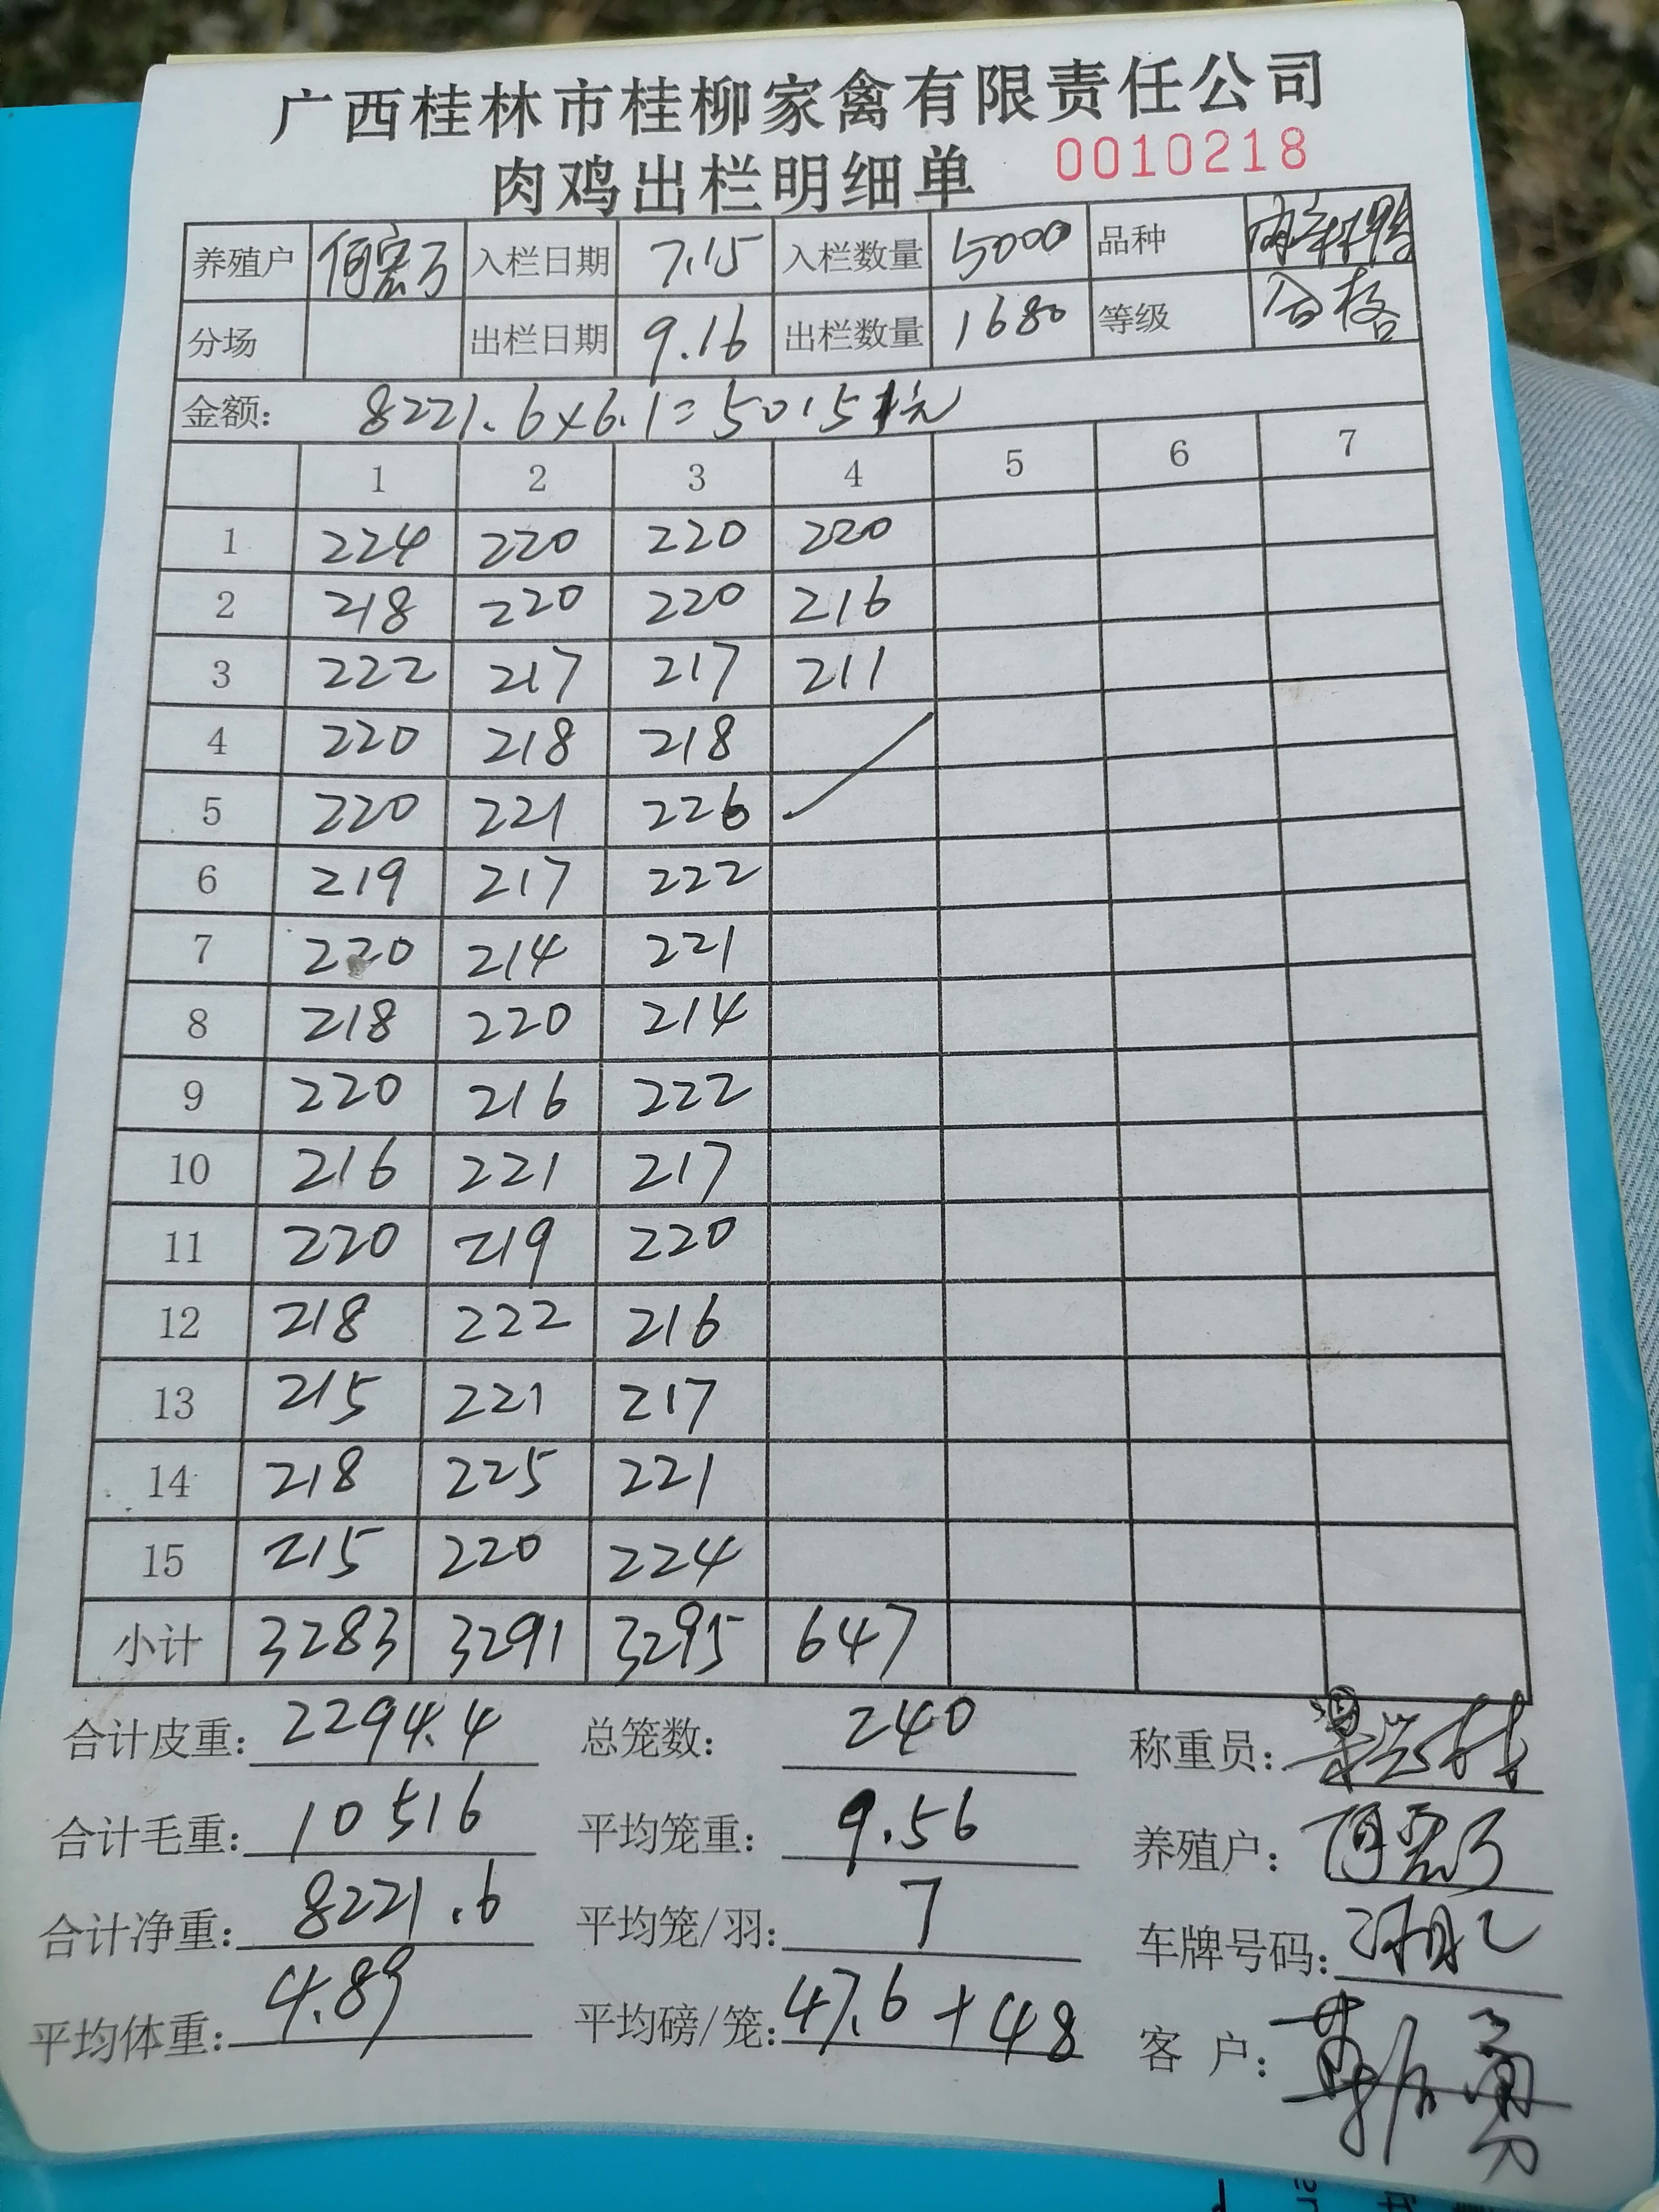 广西桂林市桂柳家禽有限责任公司
肉鸡出栏明细单 0010218
养殖户 何宏万 入栏日期 7.15 入栏数量 5000 品种
分场 出栏日期 9.16 出栏数量 1680 等级 合格
金额: 8221.6×6.1=50151元
1 2 3 4 5 6 7
1 224 220 220 220
2 218 220 220 216
3 222 217 217 211
4 220 218 218
5 220 221 226
6 219 217 222
7 220 214 221
8 218 220 214
9 220 216 222
10 216 221 217
11 220 219 220
12 218 222 216
13 215 221 217
14 218 225 221
15 215 220 224
小计 3283 3291 3295 647
合计皮重: 2294.4 总笼数: 240 称重员:
合计毛重: 10516 平均笼重: 9.56 养殖户: 何宏万
合计净重: 8221.6 平均笼/羽: 7 车牌号码:
平均体重: 4.89 平均磅/笼: 47.6+48 客户: